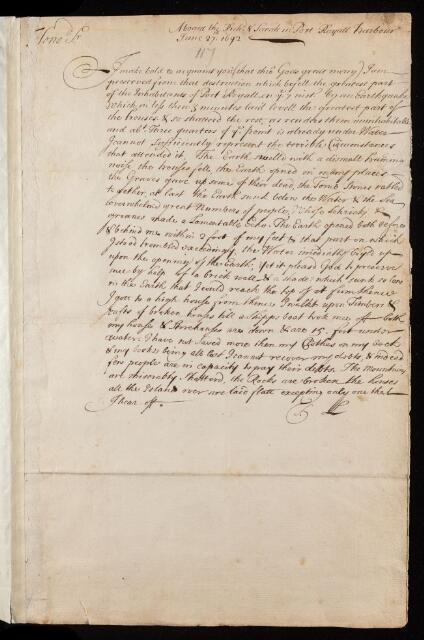 Hono:d Sr
Aboard the Rich: & Sarah in Port Royall harbour
June 27. 1692
I make bold to acquaint you that thro Gods great mercy I am
preserved from that destruction which befell the greatest part
of the Inhabitants of Port Royall ye 7 inst by an Earthquake
which in less then 3 minutes laid levell the greatest part of
the houses & so shattered the rest, as renders them uninhabitable
and abt Three quarters of ye front is already under Water
I cannot sufficiently represent the terrible Circumstances
that attended it. The Earth swell'd with a dismall humming
noise, the houses fell, the Earth opned in many places
the Graves gave up some of their dead, the Tomb Stones rattled
together, at last the Earth sunk below the Water & the Sea
overwhelmd great Numbers of people, whose schrieks &
groanes made a Lamentable Echo. The Earth opened both before
& behind me within 2 foot of my feet & that part on which
I stood trembled exceedingly, the Water imediatly boyl'd up
upon the opening of the Earth, Yet it pleased God to preserve
me by help of a brick wall & a shade which sunk so low
in the Earth that I could reach the top of it from thence
I got to a high house from thence I walkt upon Timber &
Rafts of broken houses till a Shipps boat took me off both
my houses & Storehouses are down & are 15. foot under
water I have not saved more then my Cloathes on my back
& my books being all lost I cannot recover my debts, & indeed
few people are in capacity to pay their debts. The Mountains
are miserably shattered, the Rocks are broken the houses
all the Island over are laid flatt excepting only one that
I hear off.